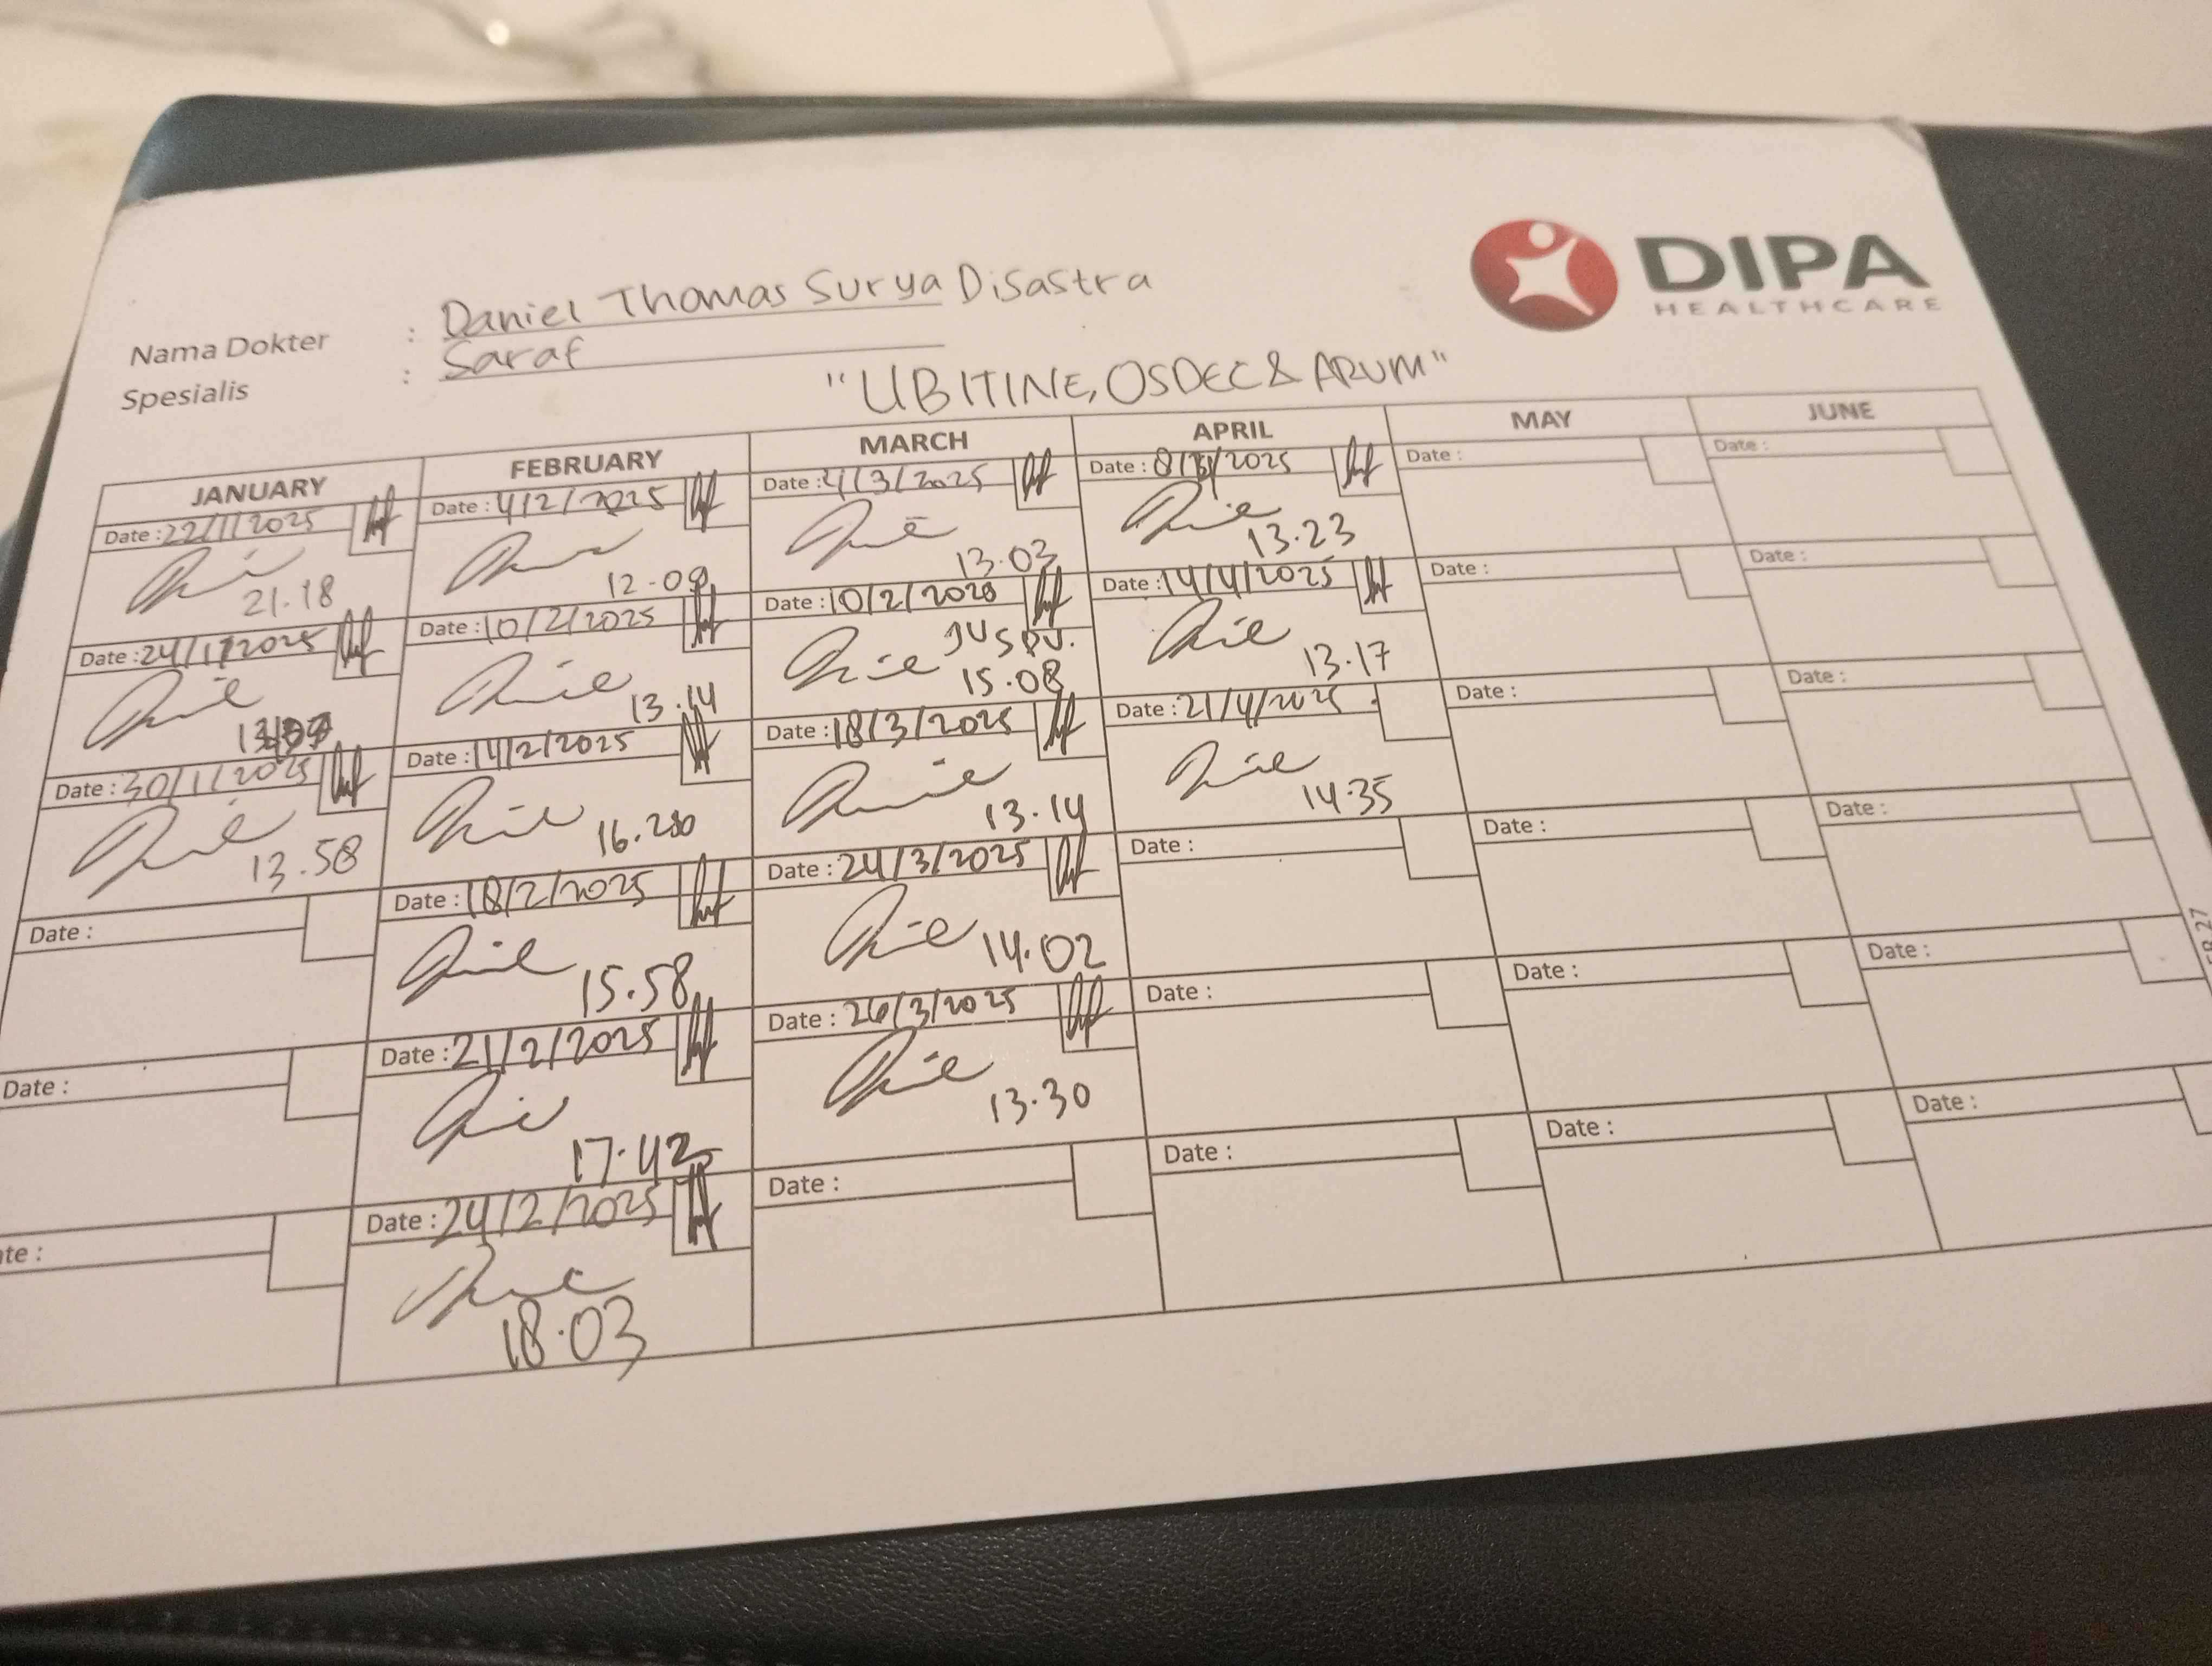 DIPA
HEALTHCARE
Nama Dokter : Daniel Thomas Surya Disastra
Spesialis : Saraf
"UBITINE, OSDEC & ARUM"
JANUARY
Date : 22/1/2025
21.18
Date : 24/1/2025
Date : 30/1/2025
13.58
Date :
Date :
te :
FEBRUARY
Date : 4/2/2025
12.09
Date : 10/2/2025
13.14
Date : 14/2/2025
16.
Date : 18/2/2025
15.58
Date : 21/2/2025
17.42
Date : 24/2/2025
18.03
MARCH
Date : 4/3/2025
13.03
Date : 10/2/2025
15.08
Date : 18/3/2025
13.14
Date : 24/3/2025
14.02
Date : 26/3/2025
13.30
Date :
APRIL
Date : 8/4/2025
13.23
Date : 14/4/2025
13.17
Date : 21/4/2025
14.35
Date :
Date :
Date :
MAY
Date :
Date :
Date :
Date :
Date :
Date :
JUNE
Date :
Date :
Date :
Date :
Date :
Date :